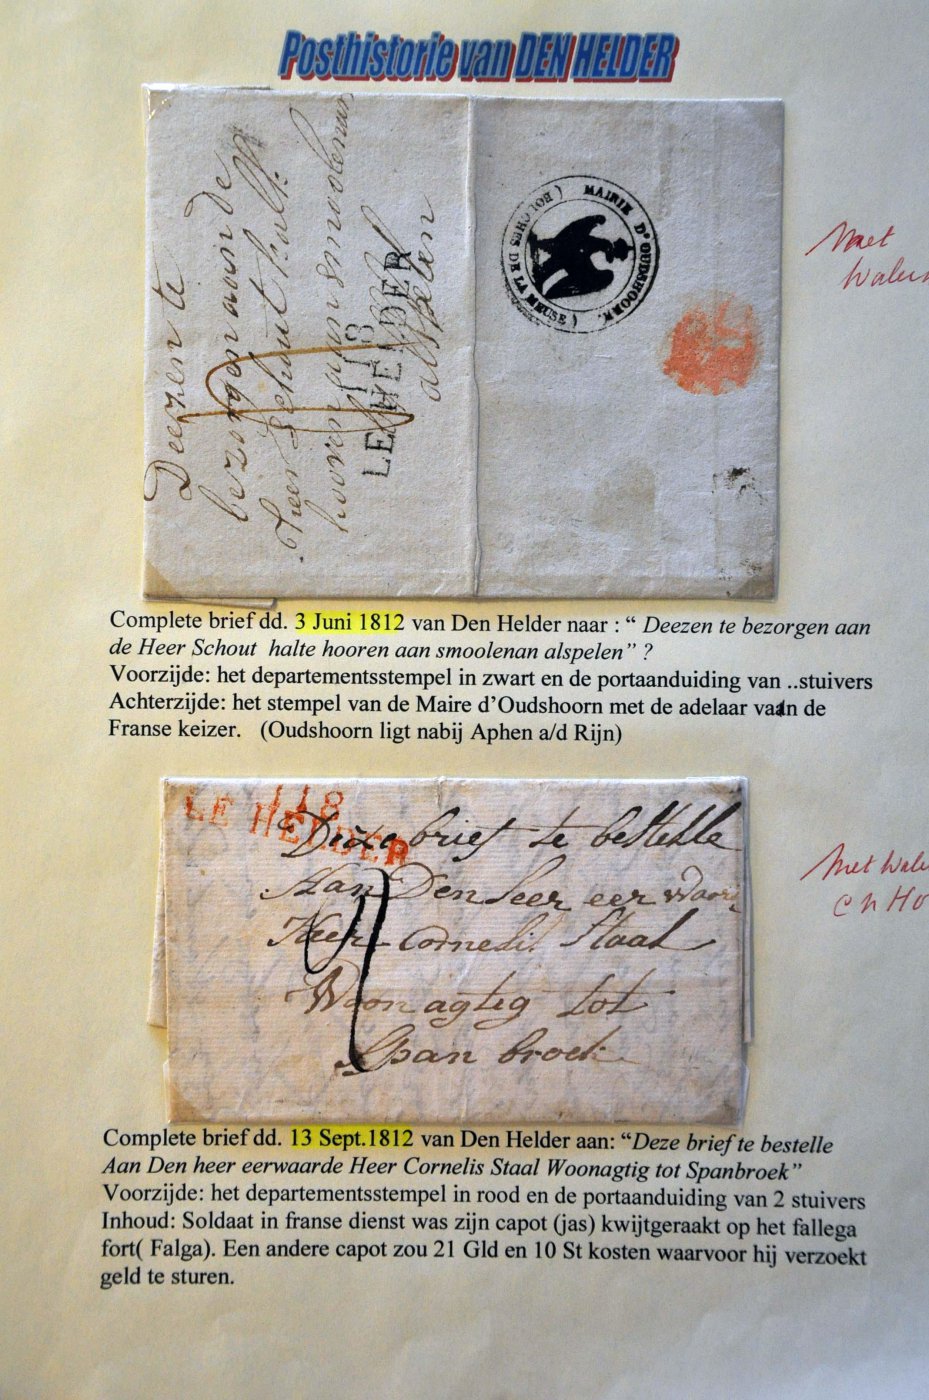 Posthistorie van DEN HELDER
Deezen te
bezorgen aan de
Heer Schout halt
hooren aan smoolenan
alspelen
118
LE HELDER
( BOUCHES DE LA MEUSE ) MAIRIE D'OUDSHOORN.
Met
Waterm
Complete brief dd. 3 Juni 1812 van Den Helder naar : “ Deezen te bezorgen aan
de Heer Schout halte hooren aan smoolenan alspelen” ?
Voorzijde: het departementsstempel in zwart en de portaanduiding van ..stuivers
Achterzijde: het stempel van de Maire d’Oudshoorn met de adelaar van de
Franse keizer. (Oudshoorn ligt nabij Aphen a/d Rijn)
118
LE HELDER
Dieze brief te bestelle
Aan Den heer eer waor
Heer Cornelis Staal
Woonagtig tot
Span broek
Met Wate
Complete brief dd. 13 Sept.1812 van Den Helder aan: “Deze brief te bestelle
Aan Den heer eerwaarde Heer Cornelis Staal Woonagtig tot Spanbroek”
Voorzijde: het departementsstempel in rood en de portaanduiding van 2 stuivers
Inhoud: Soldaat in franse dienst was zijn capot (jas) kwijtgeraakt op het fallega
fort( Falga). Een andere capot zou 21 Gld en 10 St kosten waarvoor hij verzoekt
geld te sturen.